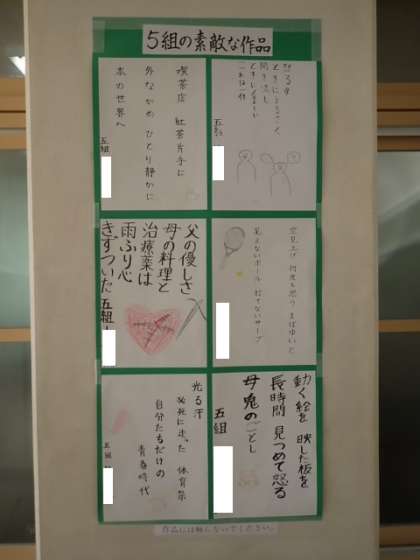 5組の素敵な作品
怒る母
ときに
聞き流し
ときに
五組
喫茶店 紅茶片手に
外ながめ ひとり静かに
本の世界へ
五組
空見上げ 何度も思う まばゆいと
見えないボール 打てないサーブ
父の優しさ
母の料理と
治療薬は
雨ふり心
きずついた
五組
動く絵を 映した板を
長時間 見つめて怒る
母鬼のごとし
五組
光る汗
必死に走った 体育祭
自分たちだけの
青春時代
五組
作品には触らないでください。